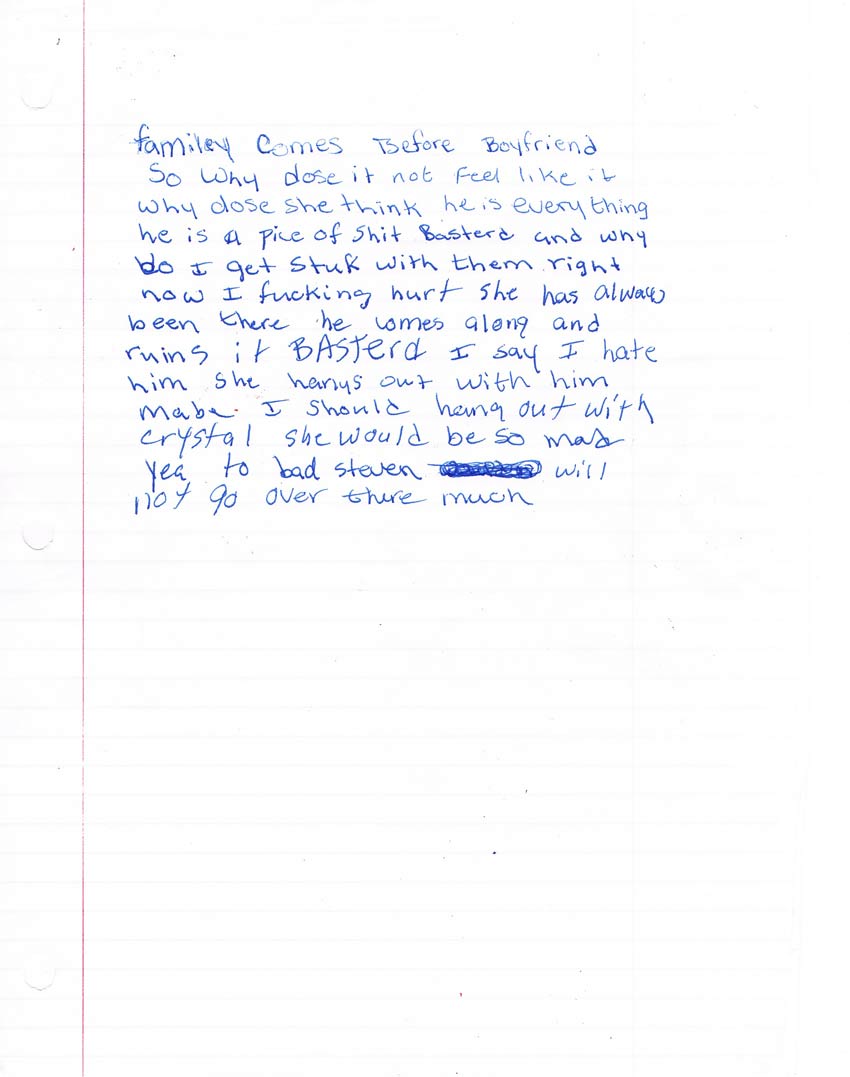 familey Comes Before Boyfriend
So Why dose it not Feel like it
why dose she think he is everything
he is a pice of Shit Basterd and why
do I get stuk with them right
now I fucking hurt she has always
been there he comes along and
ruins it BASTerd I say I hate
him she hangs out with him
mabe I should hang out with
crystal she would be so mad
yea to bad steven will
not go over there much